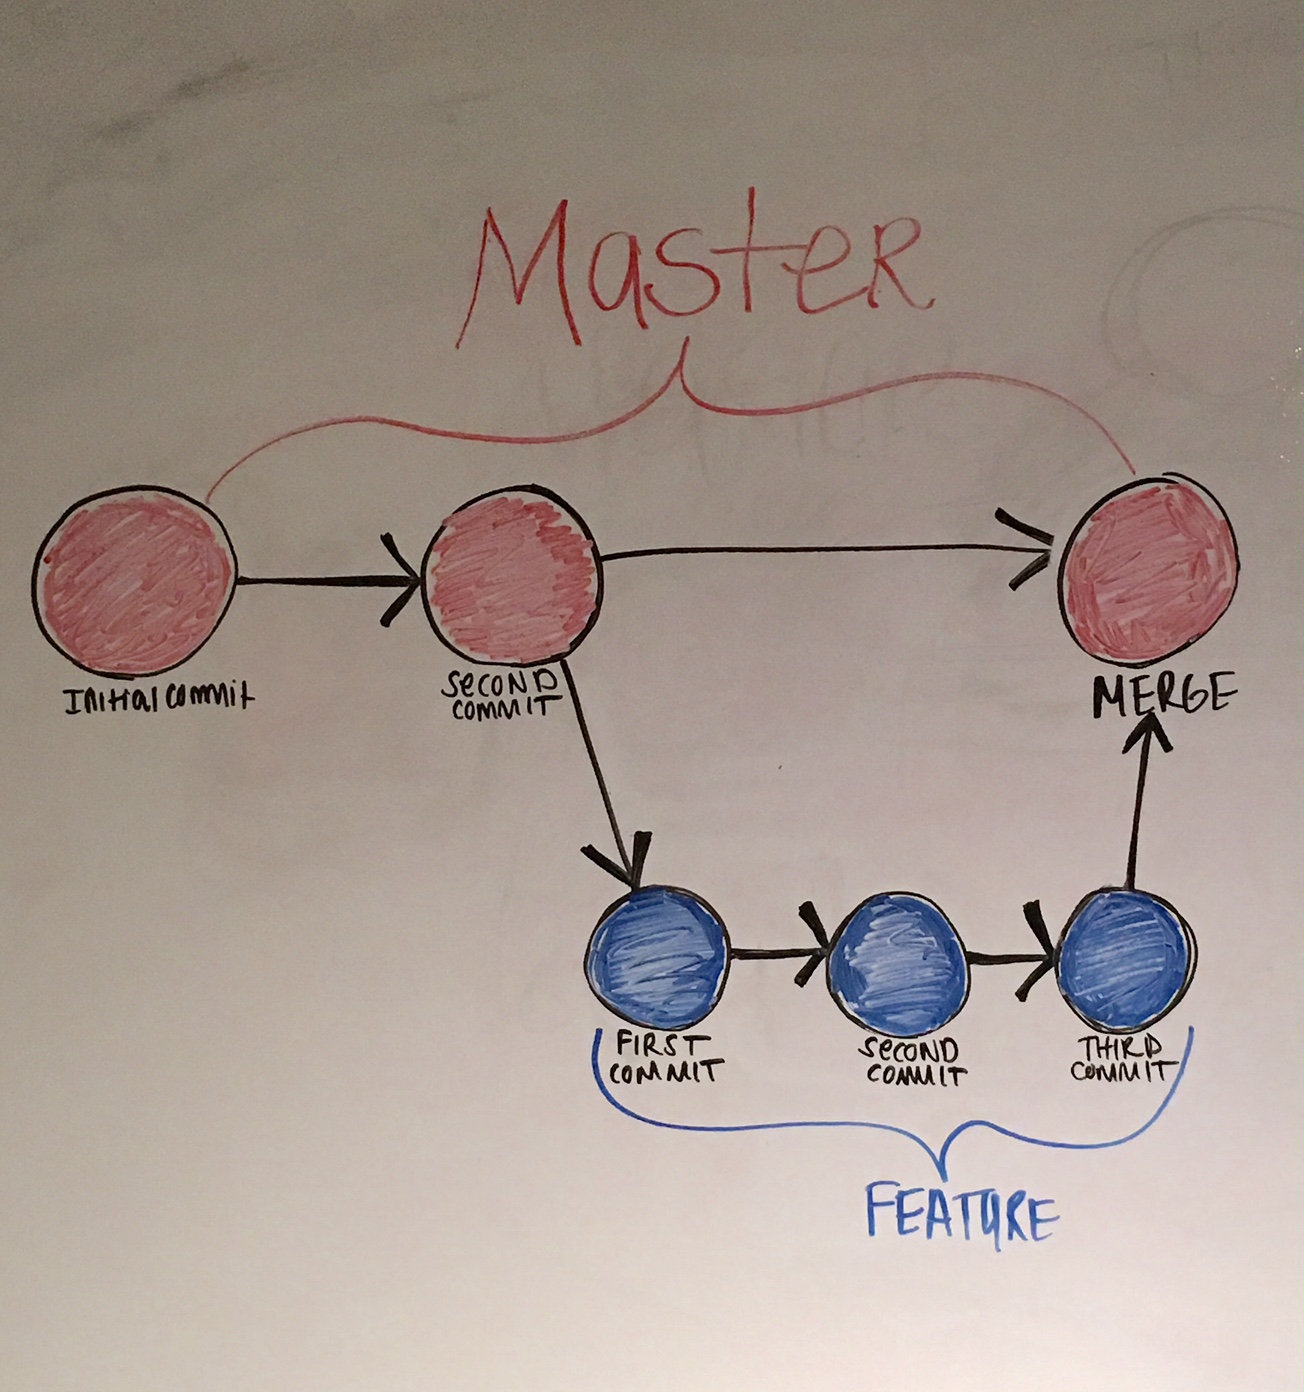 Master
Initial commit
SECOND
COMMIT
MERGE
FIRST
COMMIT
SECOND
COMMIT
THIRD
COMMIT
FEATURE